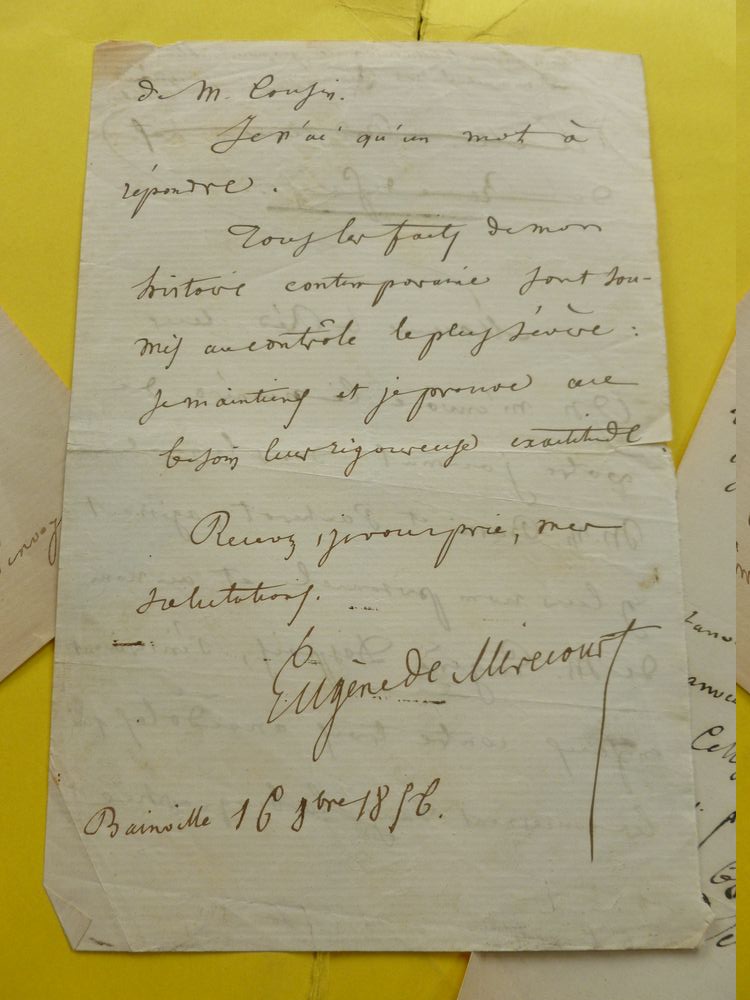 de M. Cousin.
Je n'ai qu'un mot à
répondre.
Tous les faits de mon
histoire contemporaine sont sou-
mis au contrôle le plus sévère :
je maintiens et je prouve au
besoin leur rigoureuse exactitude
Recevez, je vous prie, mes
salutations.
Eugène de Mirecourt
Bainville 16 9bre 1856.